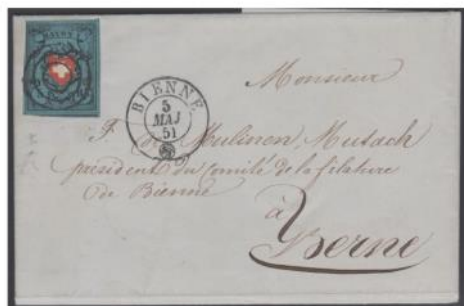 RAYON I
BIENNE
5
MAJ
51
Monsieur
F. de Mulinen Mutach
président du Comité de la filature
de Bienne
à
Berne